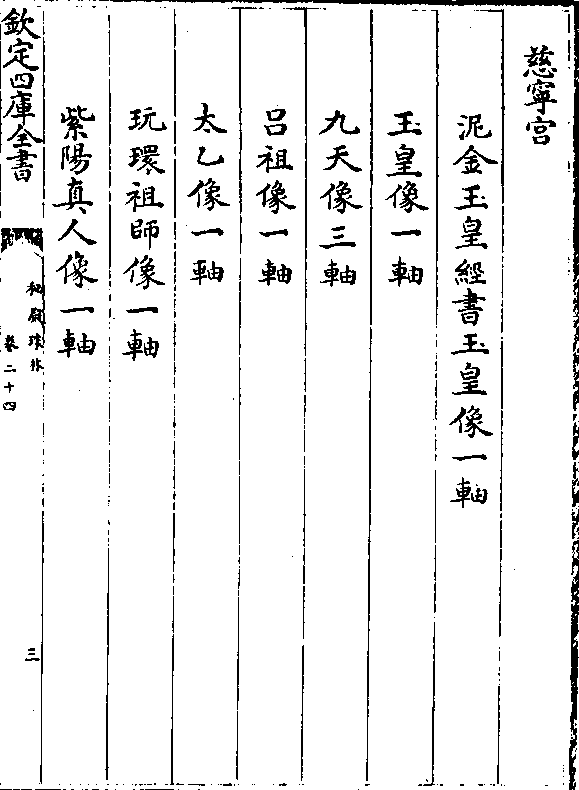 慈寧宮
泥金玉皇經書玉皇像一軸
玉皇像一軸
九天像三軸
吕祖像一軸
太乙像一軸
玩環祖師像一軸
紫陽真人像一軸
欽定四庫全書
秘殿珠林
卷二十四
三